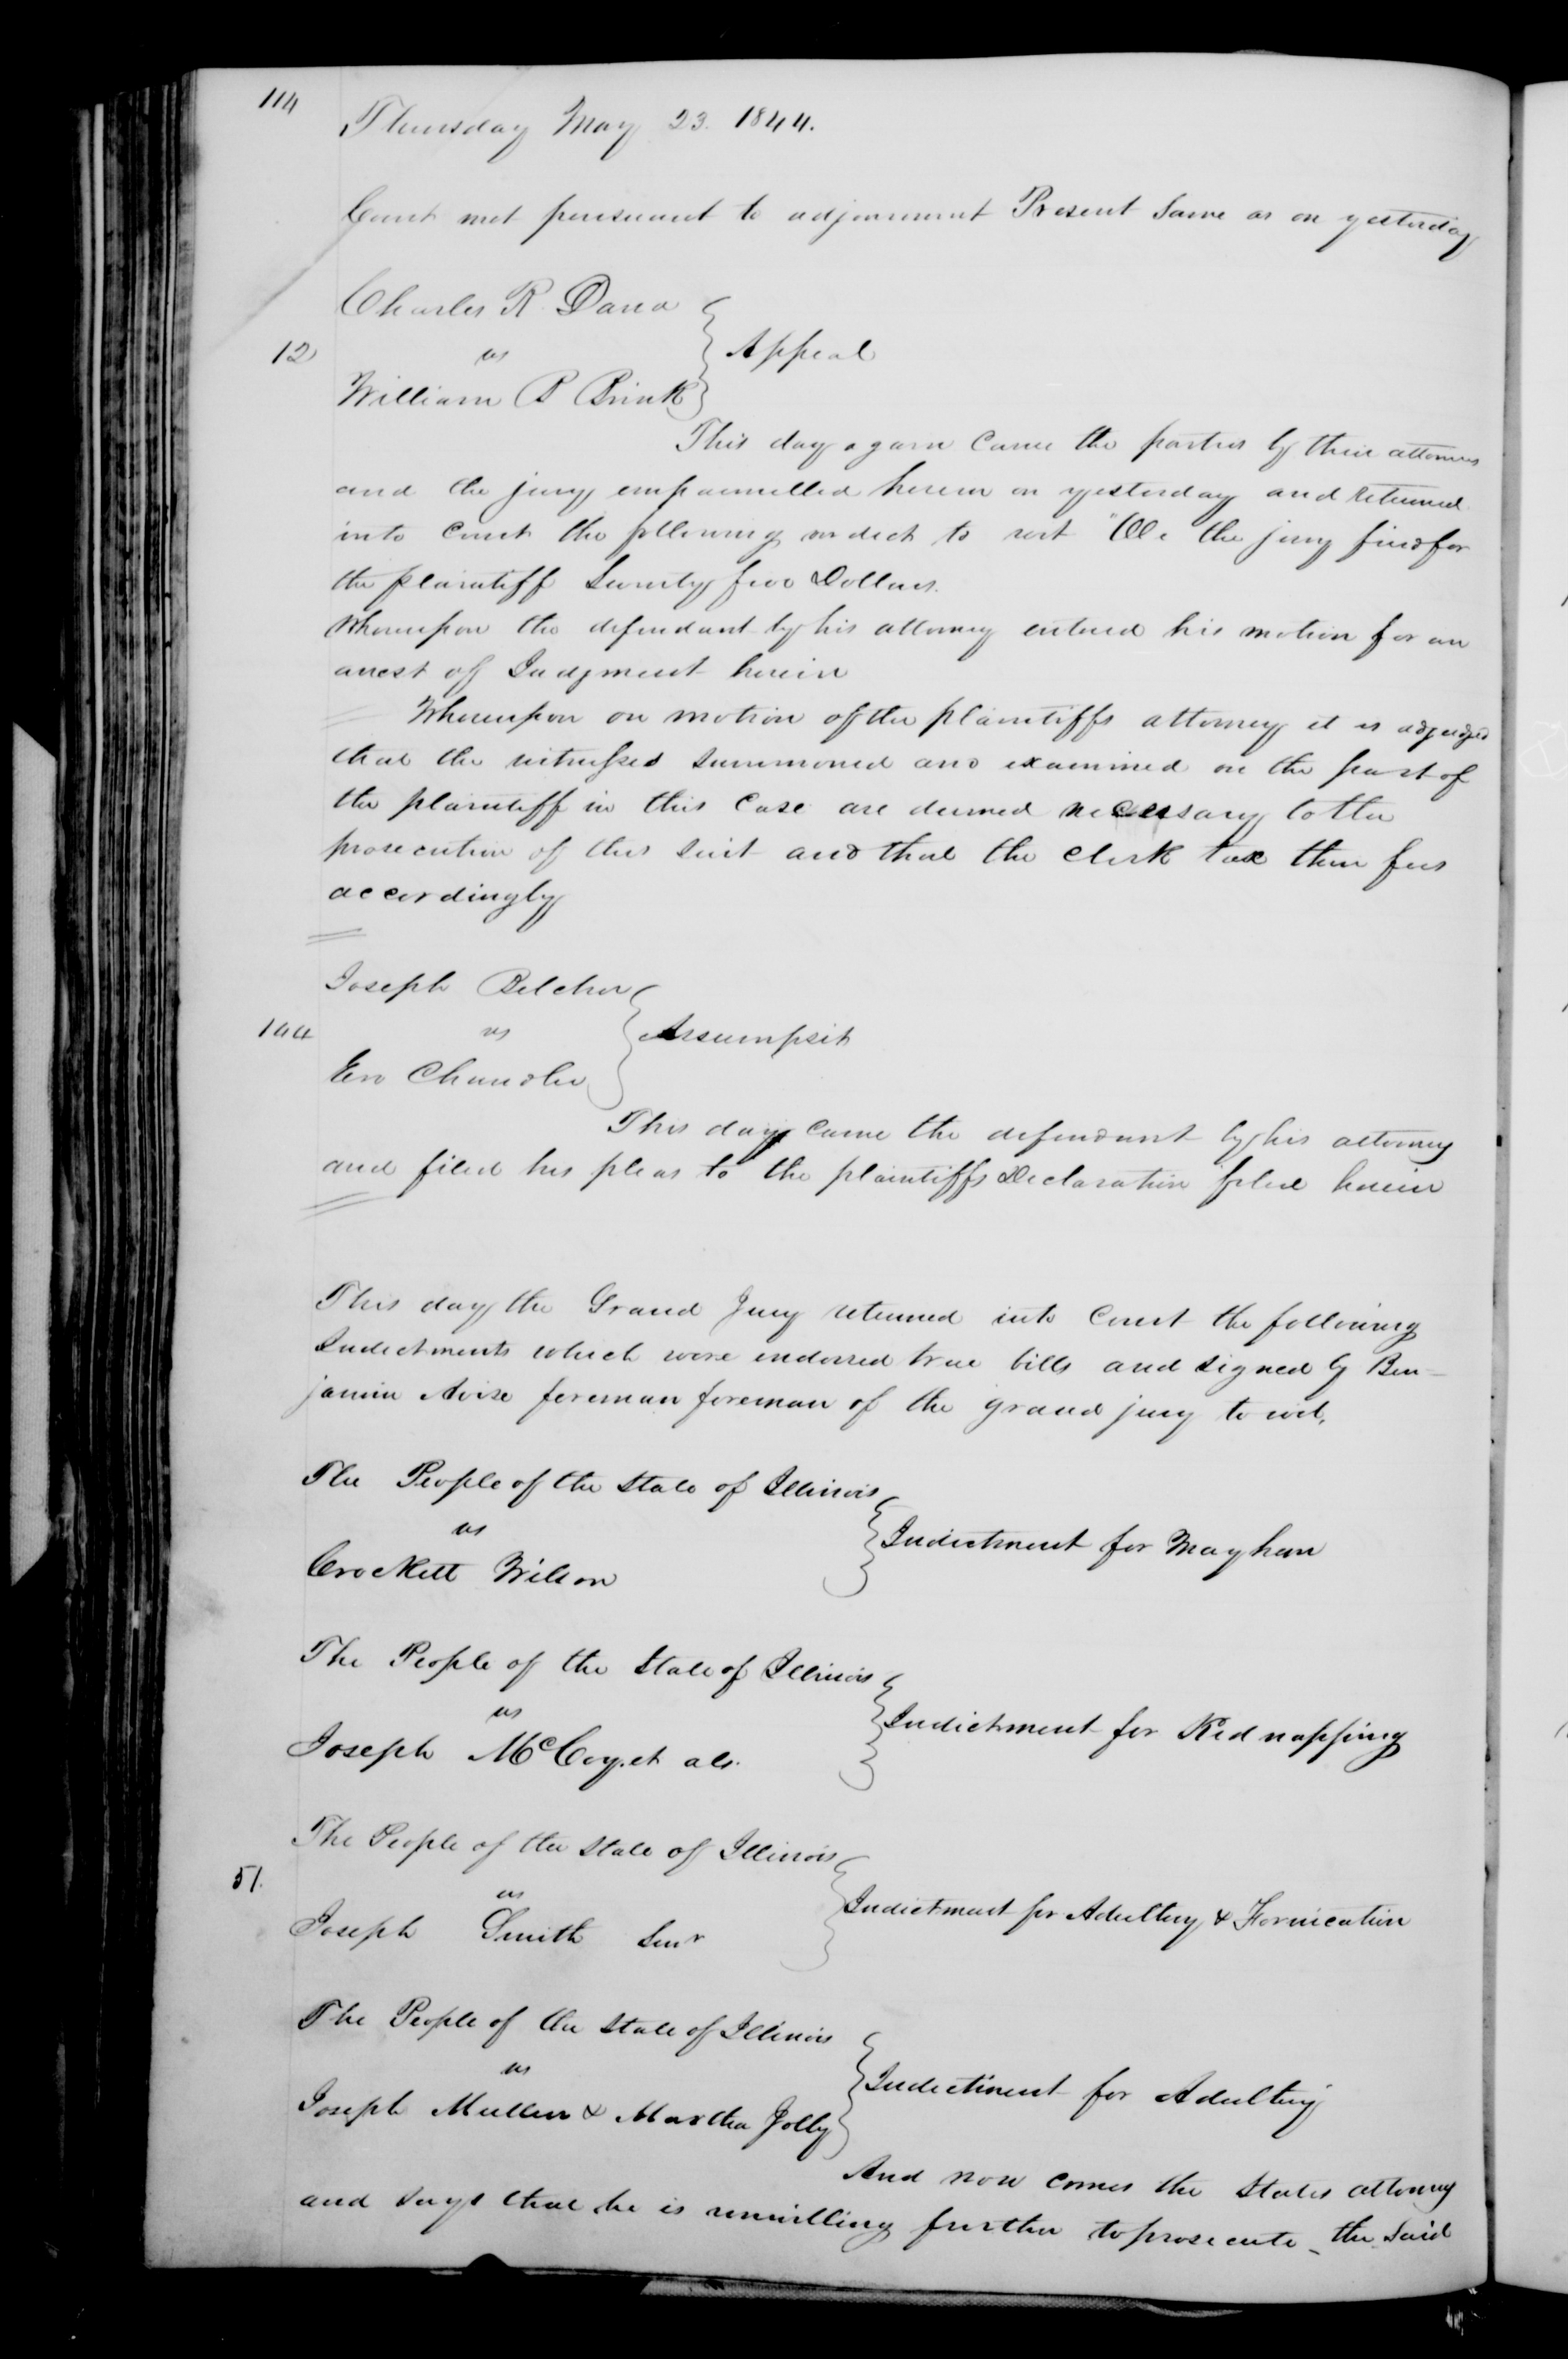 114
Thursday May 23. 1844.
Court met pursuant to adjournment Present Same as on yesterday
Charles R. Dana
12 vs } Appeal
William B Brink
This day again came the parties by their attorneys
and the jury empannelled herein on yesterday and returned
into Court the following verdict to wit "We the jury find for
the plaintiff Seventy five Dollars.
Whereupon the defendant by his attorney entered his motion for an
arrest of Judgment herein
Whereupon on motion of the plaintiffs attorney it is adjudged
that the witnesses summoned and examined on the part of
the plaintiff in this case are deemed necessary to the
prosecution of this suit and that the clerk tax their fees
accordingly
Joseph Belcher
144 vs } Assumpsit
Chandler
This day came the defendant by his attorney
and filed his pleas to the plaintiffs Declaration filed herein
This day the Grand Jury returned into Court the following
Indictments which were endorsed true bills and signed by Ben-
jamin Avise foreman foreman of the grand jury to wit,
The People of the State of Illinois
vs } Indictment for Mayhem
Crockett Wilson
The People of the State of Illinois
vs } Indictment for Kidnapping
Joseph McCoy. et als.
The People of the State of Illinois
51. vs } Indictment for Adultery & Fornication
Joseph Smith Senr
The People of the State of Illinois
vs } Indictment for Adultery
Joseph Mullen & Martha Jolly
And now comes the States attorney
and says that he is unwilling further to prosecute the said